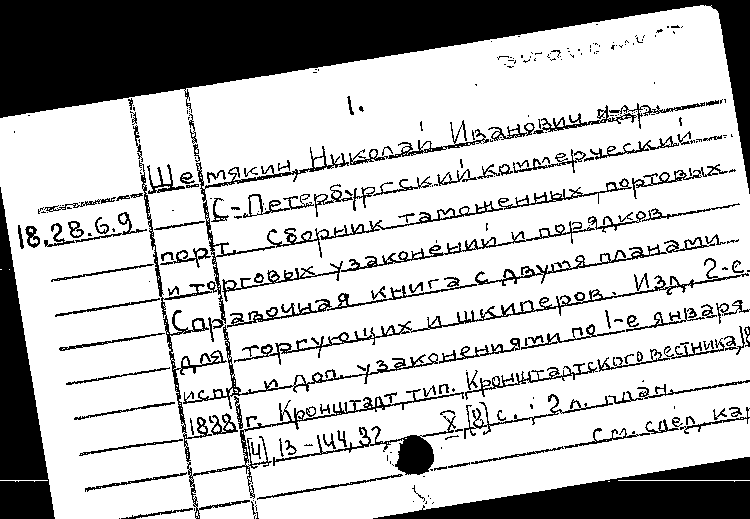 1.
Шемякин, Николай Иванович и др.
С-Петербургский коммерческий
18.28.6.9.
порт. Сборник таможенных, портовых
и торговых узаконений и порядков.
Справочная книга с двумя планами
для торгующих и шкиперов. Изд. 2-е.
испр. и доп. узаконениями по 1-е января
1888 г. Кронштадт, тип. Кронштадтского вестника, 18
[4], 13-144, 32, X, [8] с.; 2 л. план.
См. след. кар